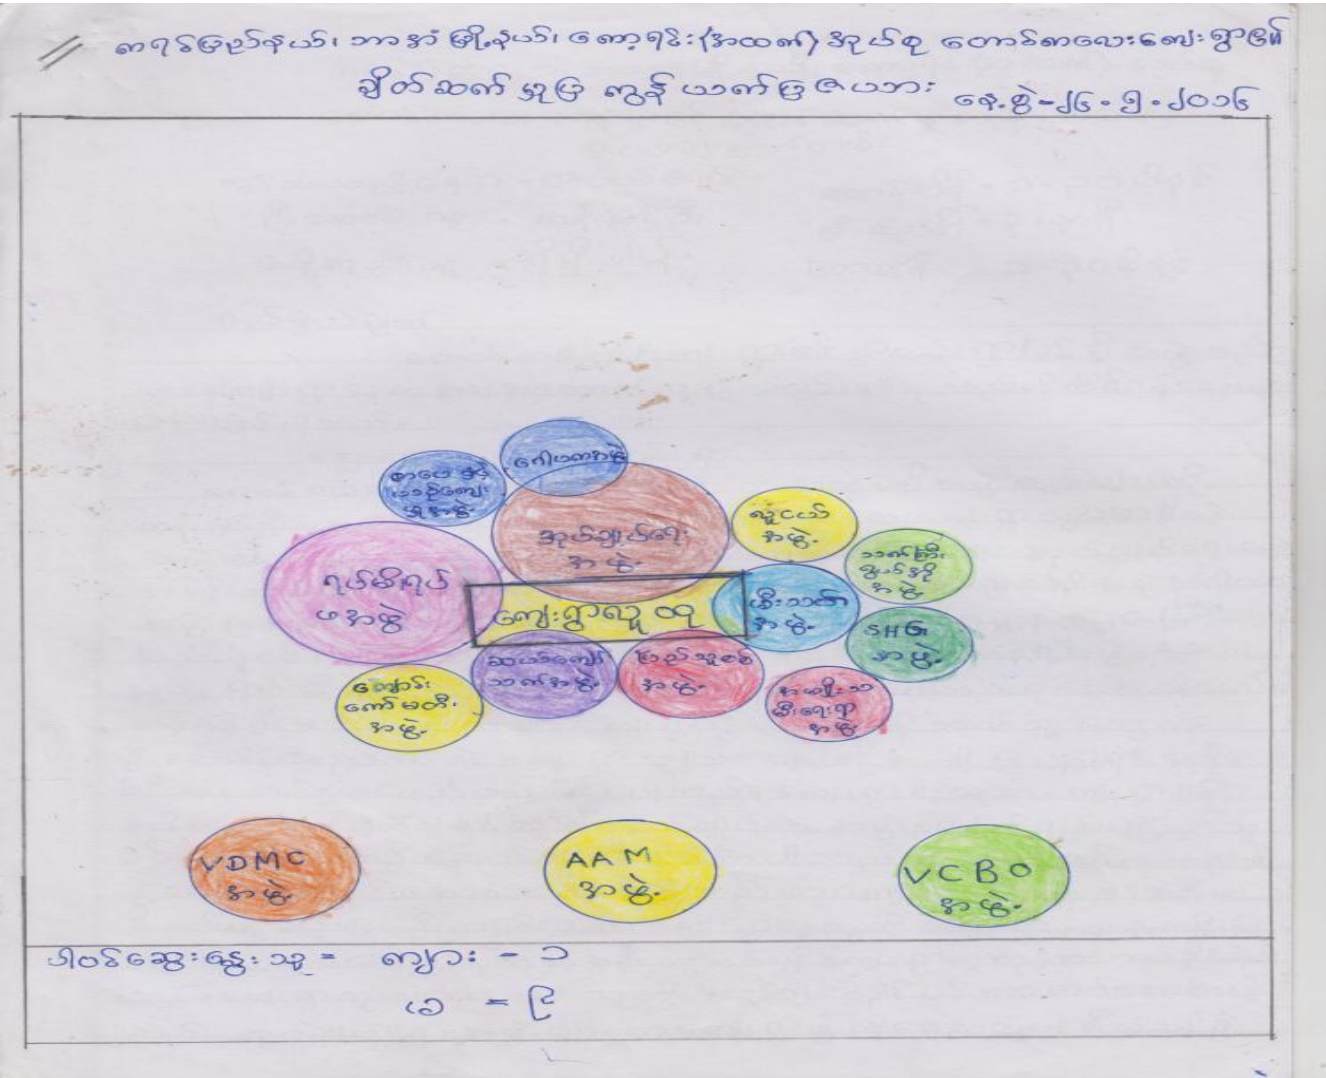 ကရင်ပြည်နယ်၊ ဘားအံမြို့နယ်၊ (အထက်) အုပ်စု တောင်ကလေးကျေးရွာ၏
ချိတ်ဆက်မှုပြ ကွန်ယက်ပြဇယား နေ့စွဲ-၂၆.၅.၂၀၁၆
စာပေ နှင့်
ယဉ်ကျေး
မှုအဖွဲ့
ဂေါပကအဖွဲ့
အုပ်ချုပ်ရေး
အဖွဲ့
လူငယ်
အဖွဲ့
သက်ကြီး
ရွယ်အို
အဖွဲ့
ရပ်မိရပ်
ဖအဖွဲ့
ကျေးရွာလူထု
မီးသတ်
အဖွဲ့
SHG
အဖွဲ့
ဆယ်ကျော်
သက်အဖွဲ့
ပြည်သူ့စစ်
အဖွဲ့
အမျိုးသ
မီးရေးရာ
အဖွဲ့
ကျောင်း
ကော်မတီ
အဖွဲ့
VDMC
အဖွဲ့
AAM
အဖွဲ့
VCBO
အဖွဲ့
ပါဝင်ဆွေးနွေးသူ = ကျား - ၁
မ = ၉